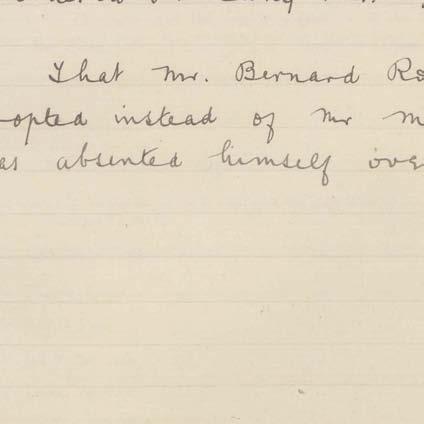 That Mr. Bernard Ro
opted instead of Mr M
as absented himself ove